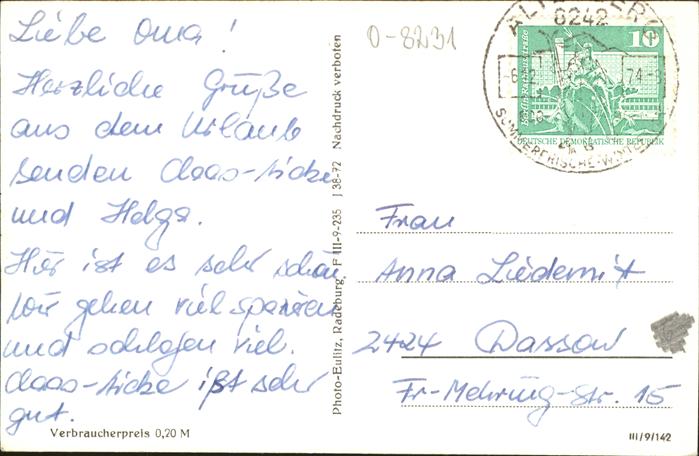 Liebe Oma!
Herzliche Grüße
aus dem Urlaub
senden Claas-Hicke
und Helga.
Hier ist es sehr schön
Wir gehen viel spazieren
und schlafen viel.
Claas-Hicke ißt sehr
gut.
Verbraucherpreis 0,20 M
Photo-Eulitz, Radeburg, F III-9-235 J 38-72 Nachdruck verboten
0-8231
ALTENBERG
6242
74-8
SOMMERFRISCHE-WINTER
10
Berlin, Rathausstraße
DEUTSCHE DEMOKRATISCHE REPUBLIK
Frau
Anna
2424 Dassow
Fr-Mehring-Str. 15
III/9/142